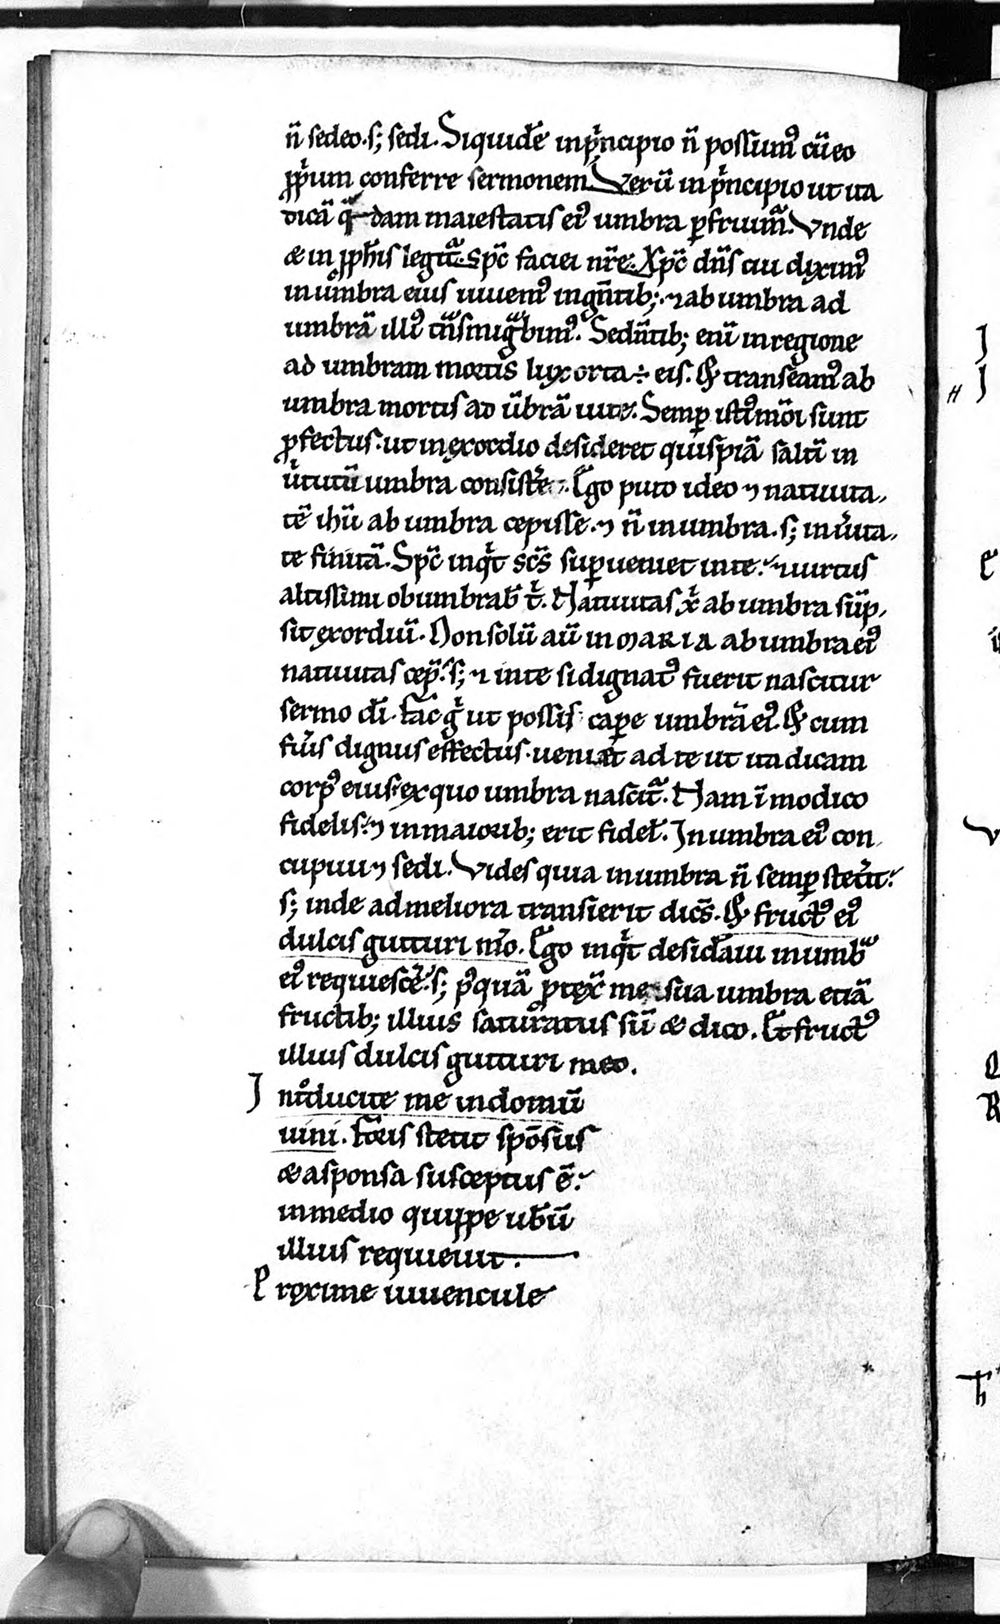 n̄ sedeo. s; sedi. Siquidē in pͥncipio n̄ possumꝰ cū eo
ꝓpͥum conferre sermonem. Verū in pͥncipio ut ita
dicā qͣdam maiestatis eiꝰ umbra ꝑfruimᷓ. Vnde
& in ꝓph̄is legitᷓ. Spc̄ faciei nr̄e. Xp̄c dn̄s cui diximꝰ
in umbra eius uiuemꝰ in gn̄tib; ⁊ ab umbra ad
umbrā illiꝰ tn̄smigͣbimꝰ. Sedn̄tib; enī in regione
ad umbram mortis lux orta ÷ eis. ut transeamꝰ ab
umbra mortis ad ūbrā uitę. Semꝑ istiꝰmōi sunt
ꝓfectus. ut in exordio desideret quispiā saltī in
uͥtutū umbra consistͤe. Ego puto ideo ⁊ natiuita-
tē ih̄u ab umbra cepisse. ⁊ n̄ in umbra. s; in uͥita-
te finitā. Spc̄ inqͥt sc̄s suꝑueniet in te. ⁊ uirtus
altissimi obumbrab̄ tͥ. Natiuitas xͥ ab umbra sūp-
sit exordiū. Non solū aū in MARIA ab umbra eiꝰ
natiuitas cep̄. s; ⁊ in te si dignatꝰ fuerit nascitur
sermo dī. Fac gͥ ut possis caꝑe umbrā eiꝰ. & cum
fuͥis dignus effectus. ueniat ad te ut ita dicam
corpꝰ eius. ex quo umbra nascitᷓ. Nam ī modico
fidelis. ⁊ in maiorib; erit fidel̄. In umbra eiꝰ con-
cupiui ⁊ sedi. Vides quia in umbra n̄ semꝑ stetͥit.
s; inde ad meliora transierit dicēs. & fructꝰ eiꝰ
dulcis gutturi mͦo. Ego inqͥt desidͣaui in umbͣ
eiꝰ requiescͤe. s; pꝰquā ꝓtex̄ me sua umbra etiā
fructib; illius saturatus sū & dico. Et fructꝰ
illius dulcis gutturi meo.
Intͦducite me in domū
uini. Foris stetit spōsus
& a sponsa susceptus ē.
in medio quippe ub̄ū
illius requieuit.
Proxime iuuencule